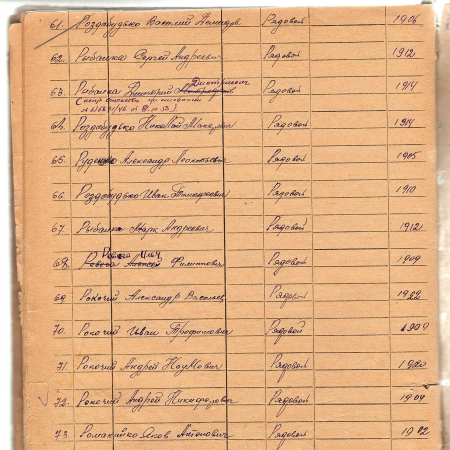 61. Роздабудько Василий Демидов Рядовой 1906
62. Рыбалка Сергей Андреевич Рядовой 1912
Дмитриевич
63. Рыбалка Григорий Рядовой 1914
64. Роздабудько Николай Макарович Рядовой 1914
65. Руденко Александр Леонтьевич Рядовой 1905
66. Роздабудько Иван Тимофеевич Рядовой 1910
67. Рыбалка Марк Андреевич Рядовой 1912
68. Ревега Алексей Филиппович Рядовой 1909
69. Рокочий Александр Васильев Рядовой 1922
70. Рокочий Иван Трофимович Рядовой 1904
71. Рокочий Андрей Наумович Рядовой 1920
72. Рокочий Андрей Никифорович Рядовой 1904
73. Ромакайко Яков Антонович Рядовой 1912